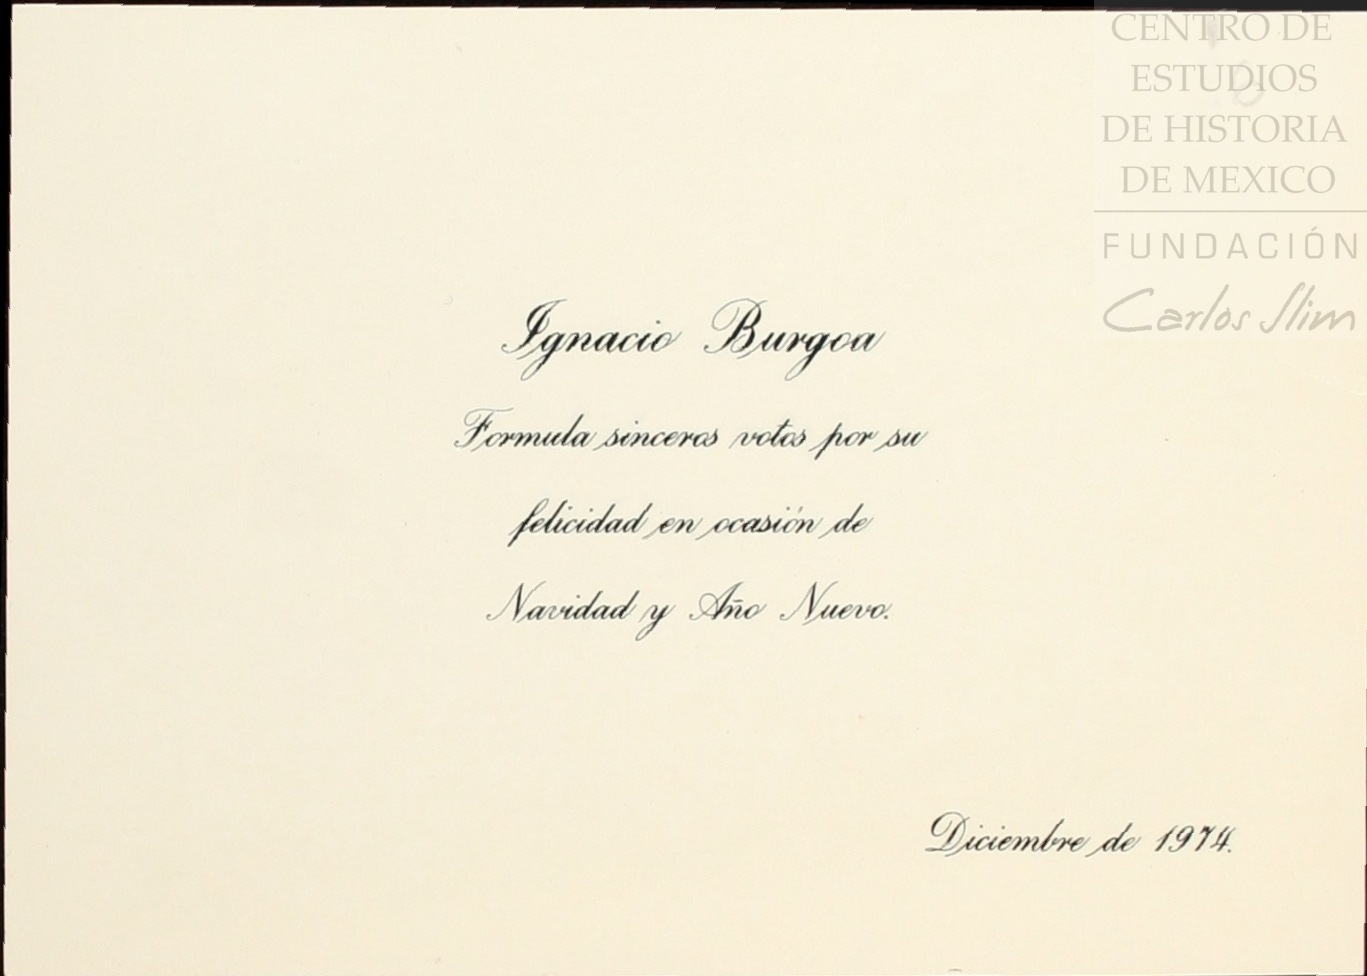 CENTRO DE
ESTUDIOS
DE HISTORIA
DE MEXICO
FUNDACIÓN
Carlos Slim
Ignacio Burgoa
Formula sinceros votos por su
felicidad en ocasión de
Navidad y Año Nuevo.
Diciembre de 1974.